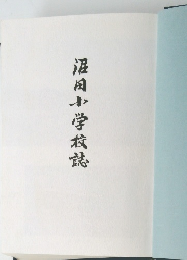 沼田小学校誌